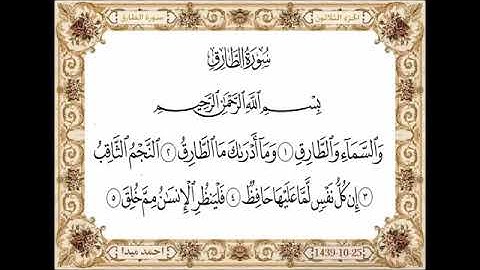 الجزء الثلاثون
سورة الطارق
سُورَةُ الطَّارِقِ
بِسْمِ اللَّهِ الرَّحْمَٰنِ الرَّحِيمِ
وَالسَّمَاءِ وَالطَّارِقِ ١ وَمَا أَدْرَىٰكَ مَا الطَّارِقُ ٢ النَّجْمُ الثَّاقِبُ
٣ إِن كُلُّ نَفْسٍ لَّمَّا عَلَيْهَا حَافِظٌ ٤ فَلْيَنظُرِ الْإِنسَٰنُ مِمَّ خُلِقَ ٥
1439-10-25
احمد ميدا